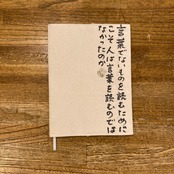 言葉でないものを読むために
こそ人は言葉を読むのでは
なかったのか